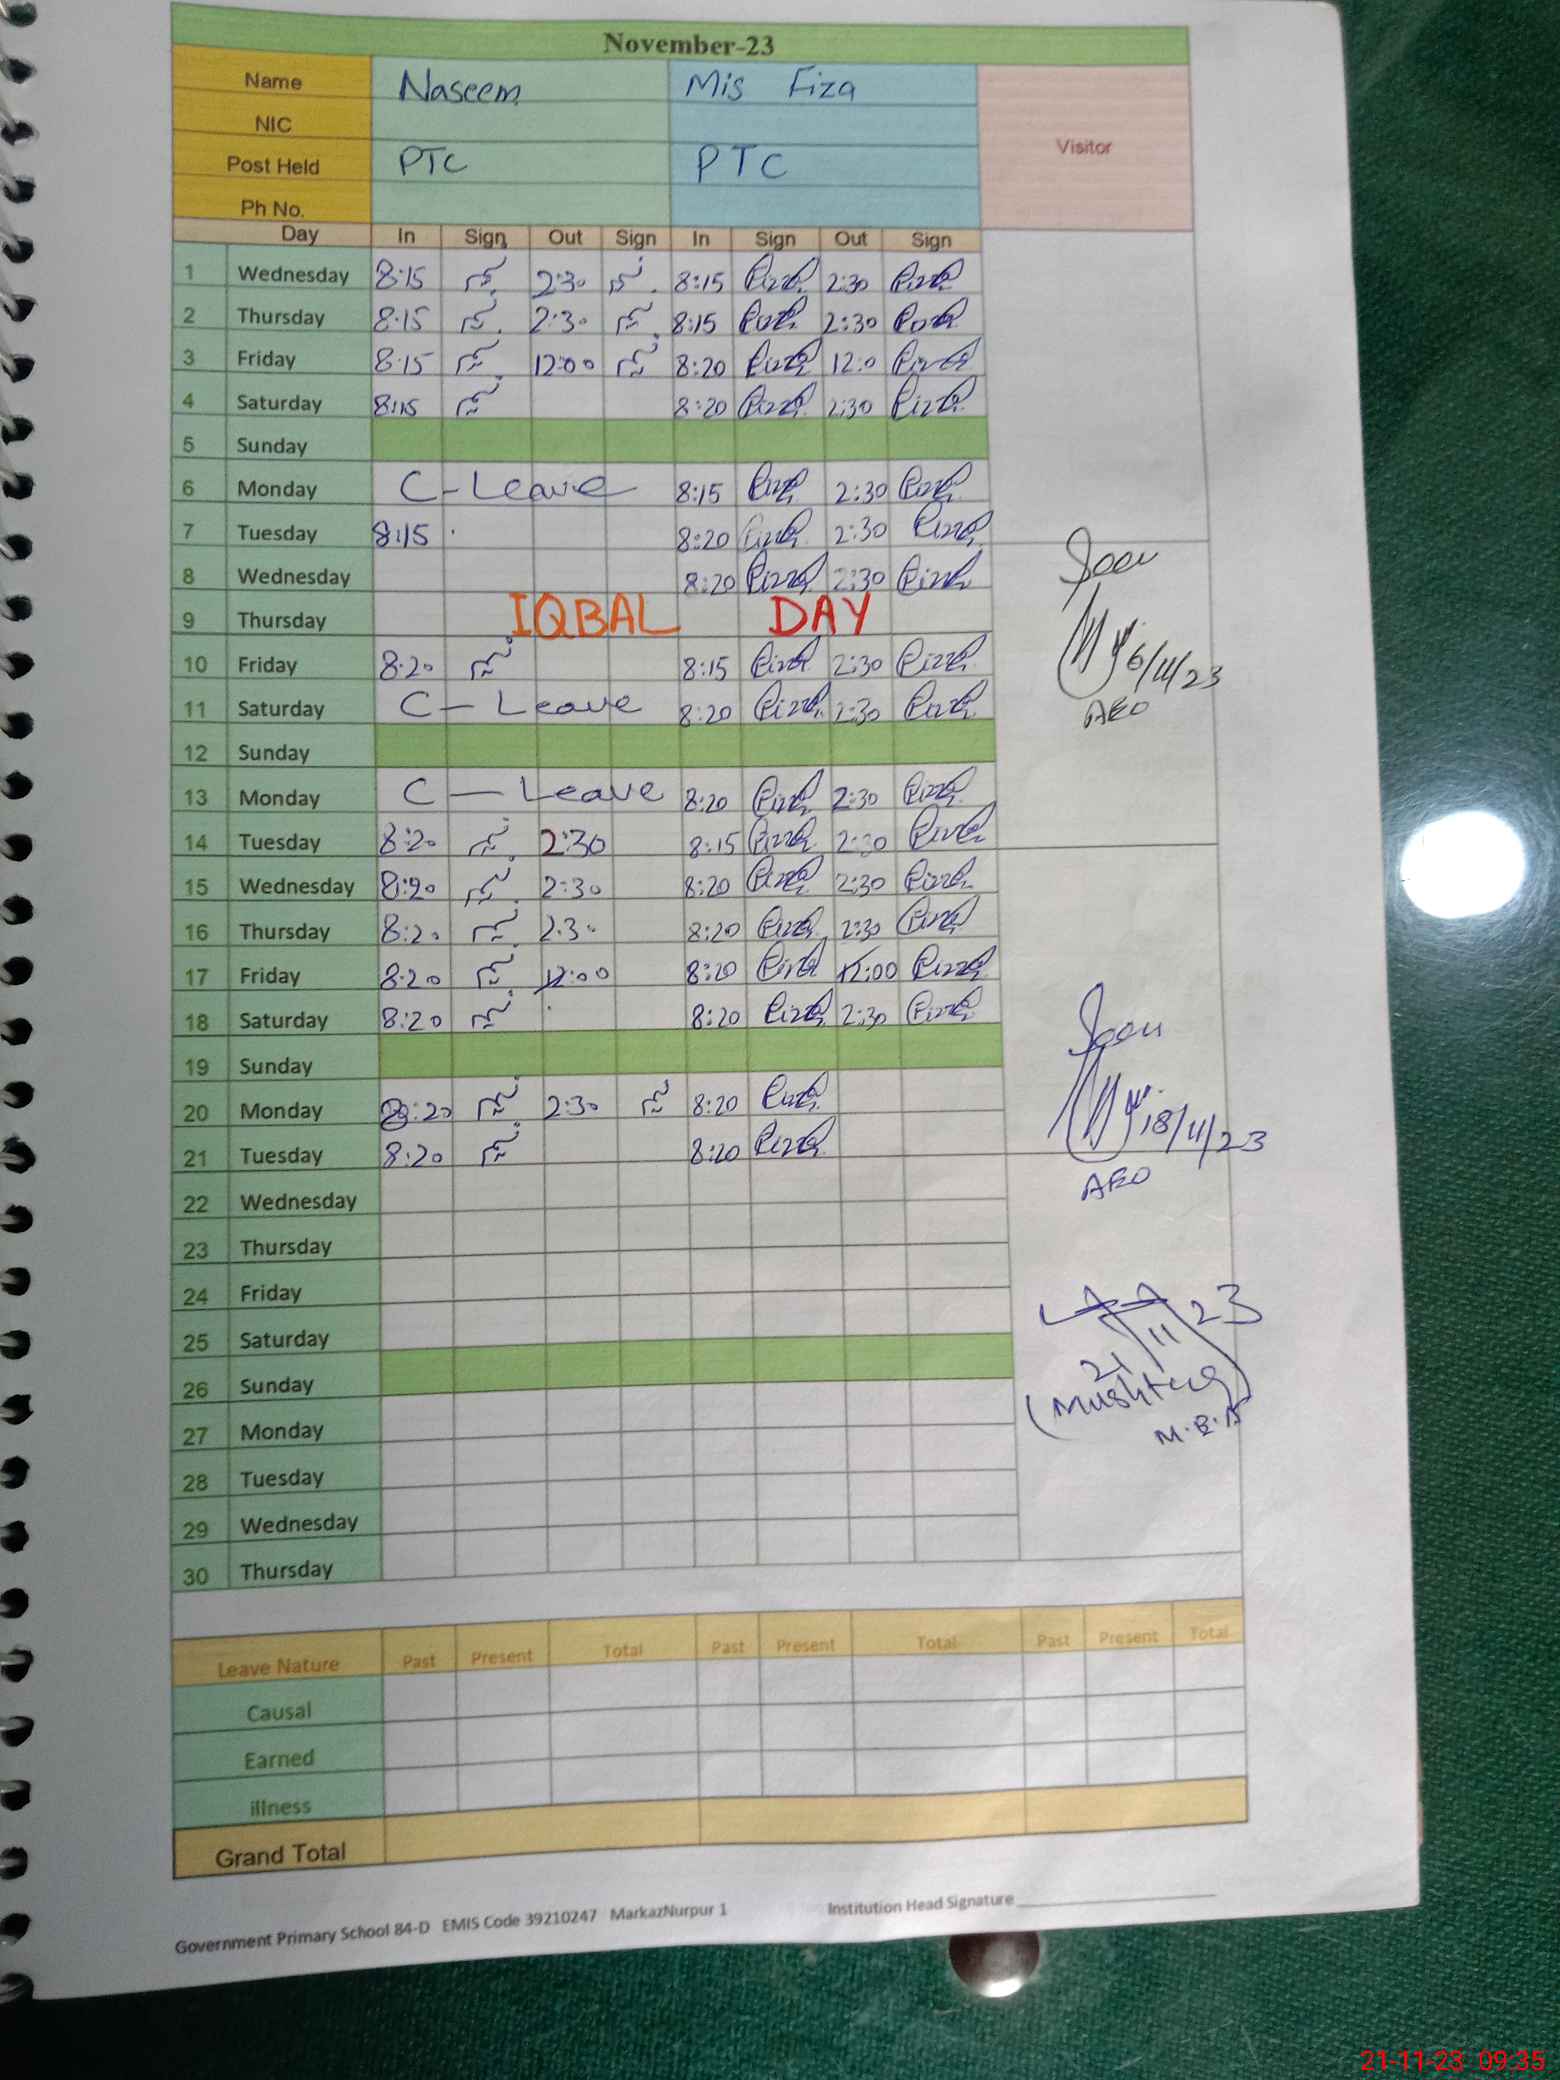 November-23
Name Naseem Mis Fiza Visitor
NIC
Post Held PTC PTC
Ph No.
Day In Sign Out Sign In Sign Out Sign
1 Wednesday 8:15 2:30 8:15 2:30
2 Thursday 8:15 2:30 8:15 2:30
3 Friday 8:15 12:00 8:20 12:0
4 Saturday 8:15 8:20 2:30
5 Sunday
6 Monday C-Leave 8:15 2:30
7 Tuesday 8:15 8:20 2:30
8 Wednesday 8:20 2:30
9 Thursday IQBAL DAY
10 Friday 8:20 8:15 2:30
6/11/23
11 Saturday C-Leave 8:20 2:30
AEO
12 Sunday
13 Monday C-Leave 8:20 2:30
14 Tuesday 8:20 2:30 8:15 2:30
15 Wednesday 8:20 2:30 8:20 2:30
16 Thursday 8:20 2:30 8:20 2:30
17 Friday 8:20 12:00 8:20 12:00
18 Saturday 8:20 8:20 2:30
19 Sunday
20 Monday 8:20 2:30 8:20
18/11/23
21 Tuesday 8:20 8:20
AEO
22 Wednesday
23 Thursday
24 Friday
25 Saturday
21/11/23
26 Sunday
27 Monday
28 Tuesday
29 Wednesday
30 Thursday
Leave Nature Past Present Total Past Present Total Past Present Total
Causal
Earned
illness
Grand Total
Government Primary School 84-D EMIS Code 39210247 MarkazNurpur 1 Institution Head Signature
21-11-23 09:35